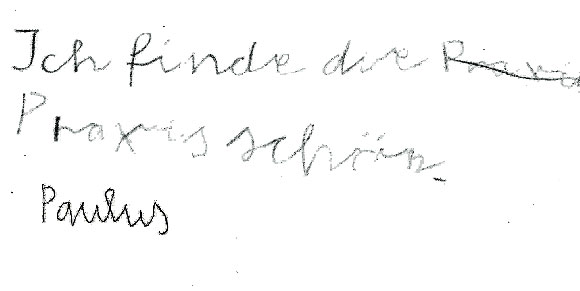 Ich finde die Praxis
Praxis schön.
Paulus